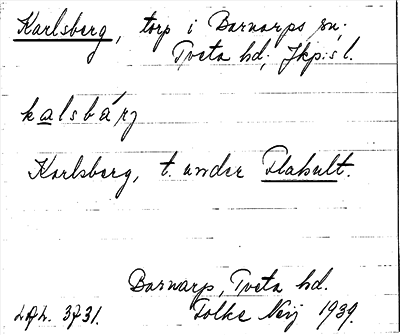 Karlsberg, torp i Barnarps sn.
Tveta hd; Jkp:s l.
kalsbárj
Karlsberg, t. under Flahult.
Barnarp, Tveta hd.
Folke Neij 1939.
3731.